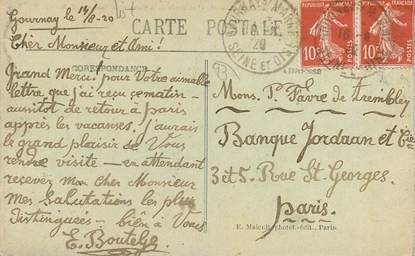 Gournay le 14/8-20
CARTE POSTALE
Cher Monsieur et Ami!
CORRESPONDANCE
ADRESSE
Grand Merci pour Votre aimable
lettre que j'ai reçu ce matin -
aussitot de retour à paris
apprès les vacanses. J'aurais
le grand plaisir de Vous
rendre visite - en attendant
recevez mon cher Monsieur
mes salutations les plus
distinguées - bien à Vous
E. Boutelje
Mons. P. Favre de Trembley
Banque Jordaan et Cie
3 et 5. Rue St. Georges.
Paris.
E. Malcuit, phot.-édit., Paris.
10 POSTES
10 POSTES
SEINE ET OISE
20